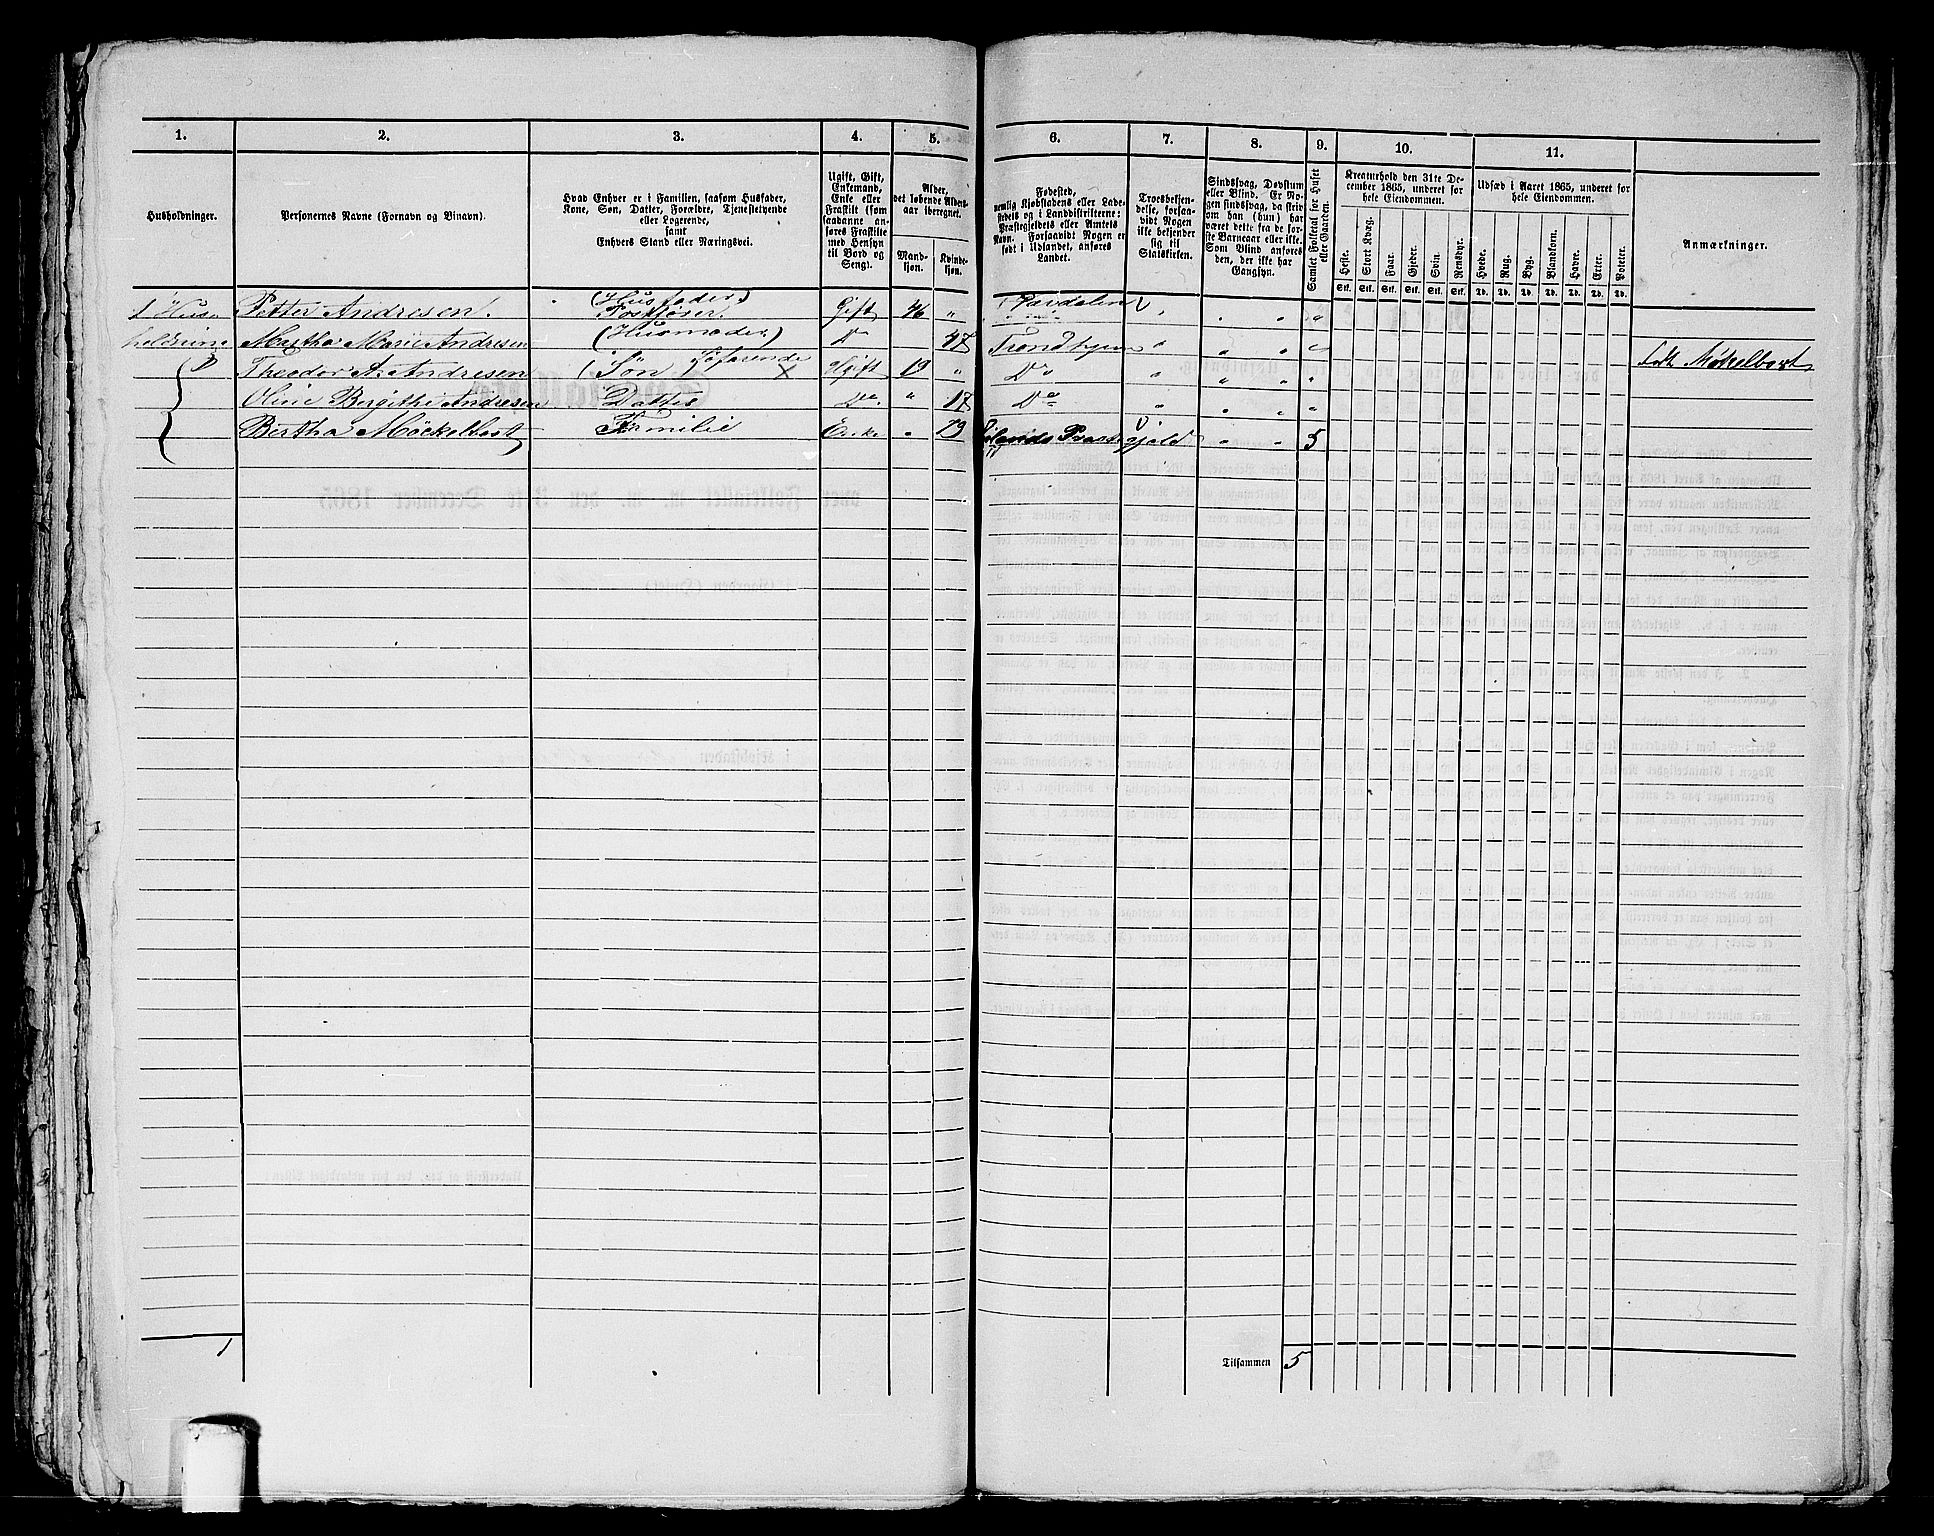 1. 2. 3. 4. 5. 6. 7. 8. 9. 10. 11.
Husholdninger.
Personernes Navne (Fornavn og Vinavn).
Hvad Enhver er i Familien, saasom Husfader,
Kone, Søn, Datter, Forældre, Tjenestetyende
eller Logerende,
samt
Enhvers Stand eller Næringsvei.
Ugift, Gift,
Enkemand,
Enke eller
Fraskilt (som
saadanne an-
føres Fraskilte
med Hensyn
til Bord og
Seng).
Alder,
det løbende Alders-
aar iberegnet.
Mand-
kjøn.
Kvinde-
kjøn.
Fødested,
nemlig Kjøbstadens eller Lade-
stedets og i Landdistrikterne:
Præstegjeldets eller Amtets
Navn. Forsaavidt Nogen er
født i Udlandet, anføres
Landet.
Troesbekjen-
delse, forsaa-
vidt Nogen
ikke bekjender
sig til
Statskirken.
Sindssvag, Døvstum
eller Blind. Er No-
gen sindssvag, da skriv
om han (hun) har
været dette fra de før-
ste Barneaar eller ikke.
Som Blind anføres
den, der ikke har
Gangsyn.
Samlet Folketal for Huset
eller Gaarden.
Kreaturhold den 31te De-
cember 1865, underet for
hele Eiendommen.
Heste. Stort Kvæg. Faar. Gjeder. Svin. Rensdyr.
Stk. Stk. Stk. Stk. Stk. Stk.
Udsæd i Aaret 1865, underet for
hele Eiendommen.
Hvede. Rug. Byg. Blandkorn. Havre. Erter. Poteter.
Td. Td. Td. Td. Td. Td. Td.
Anmærkninger.
1 Huus Petter Andresen. (Husfader) Gift 46 "
holdning Martha Marie Andresen (Husmoder) Do 47 Trondhjem "
Theodor A. Andresen Søn Søfarende X Ugift 19 " Do " " " " Møkelbost
Oline Bergithe Andresen Datter Do. " 17 Do " " " "
Bertha Möckelbost Familie Enke " 79 Præstegjeld " " 5
1
Tilsammen 5